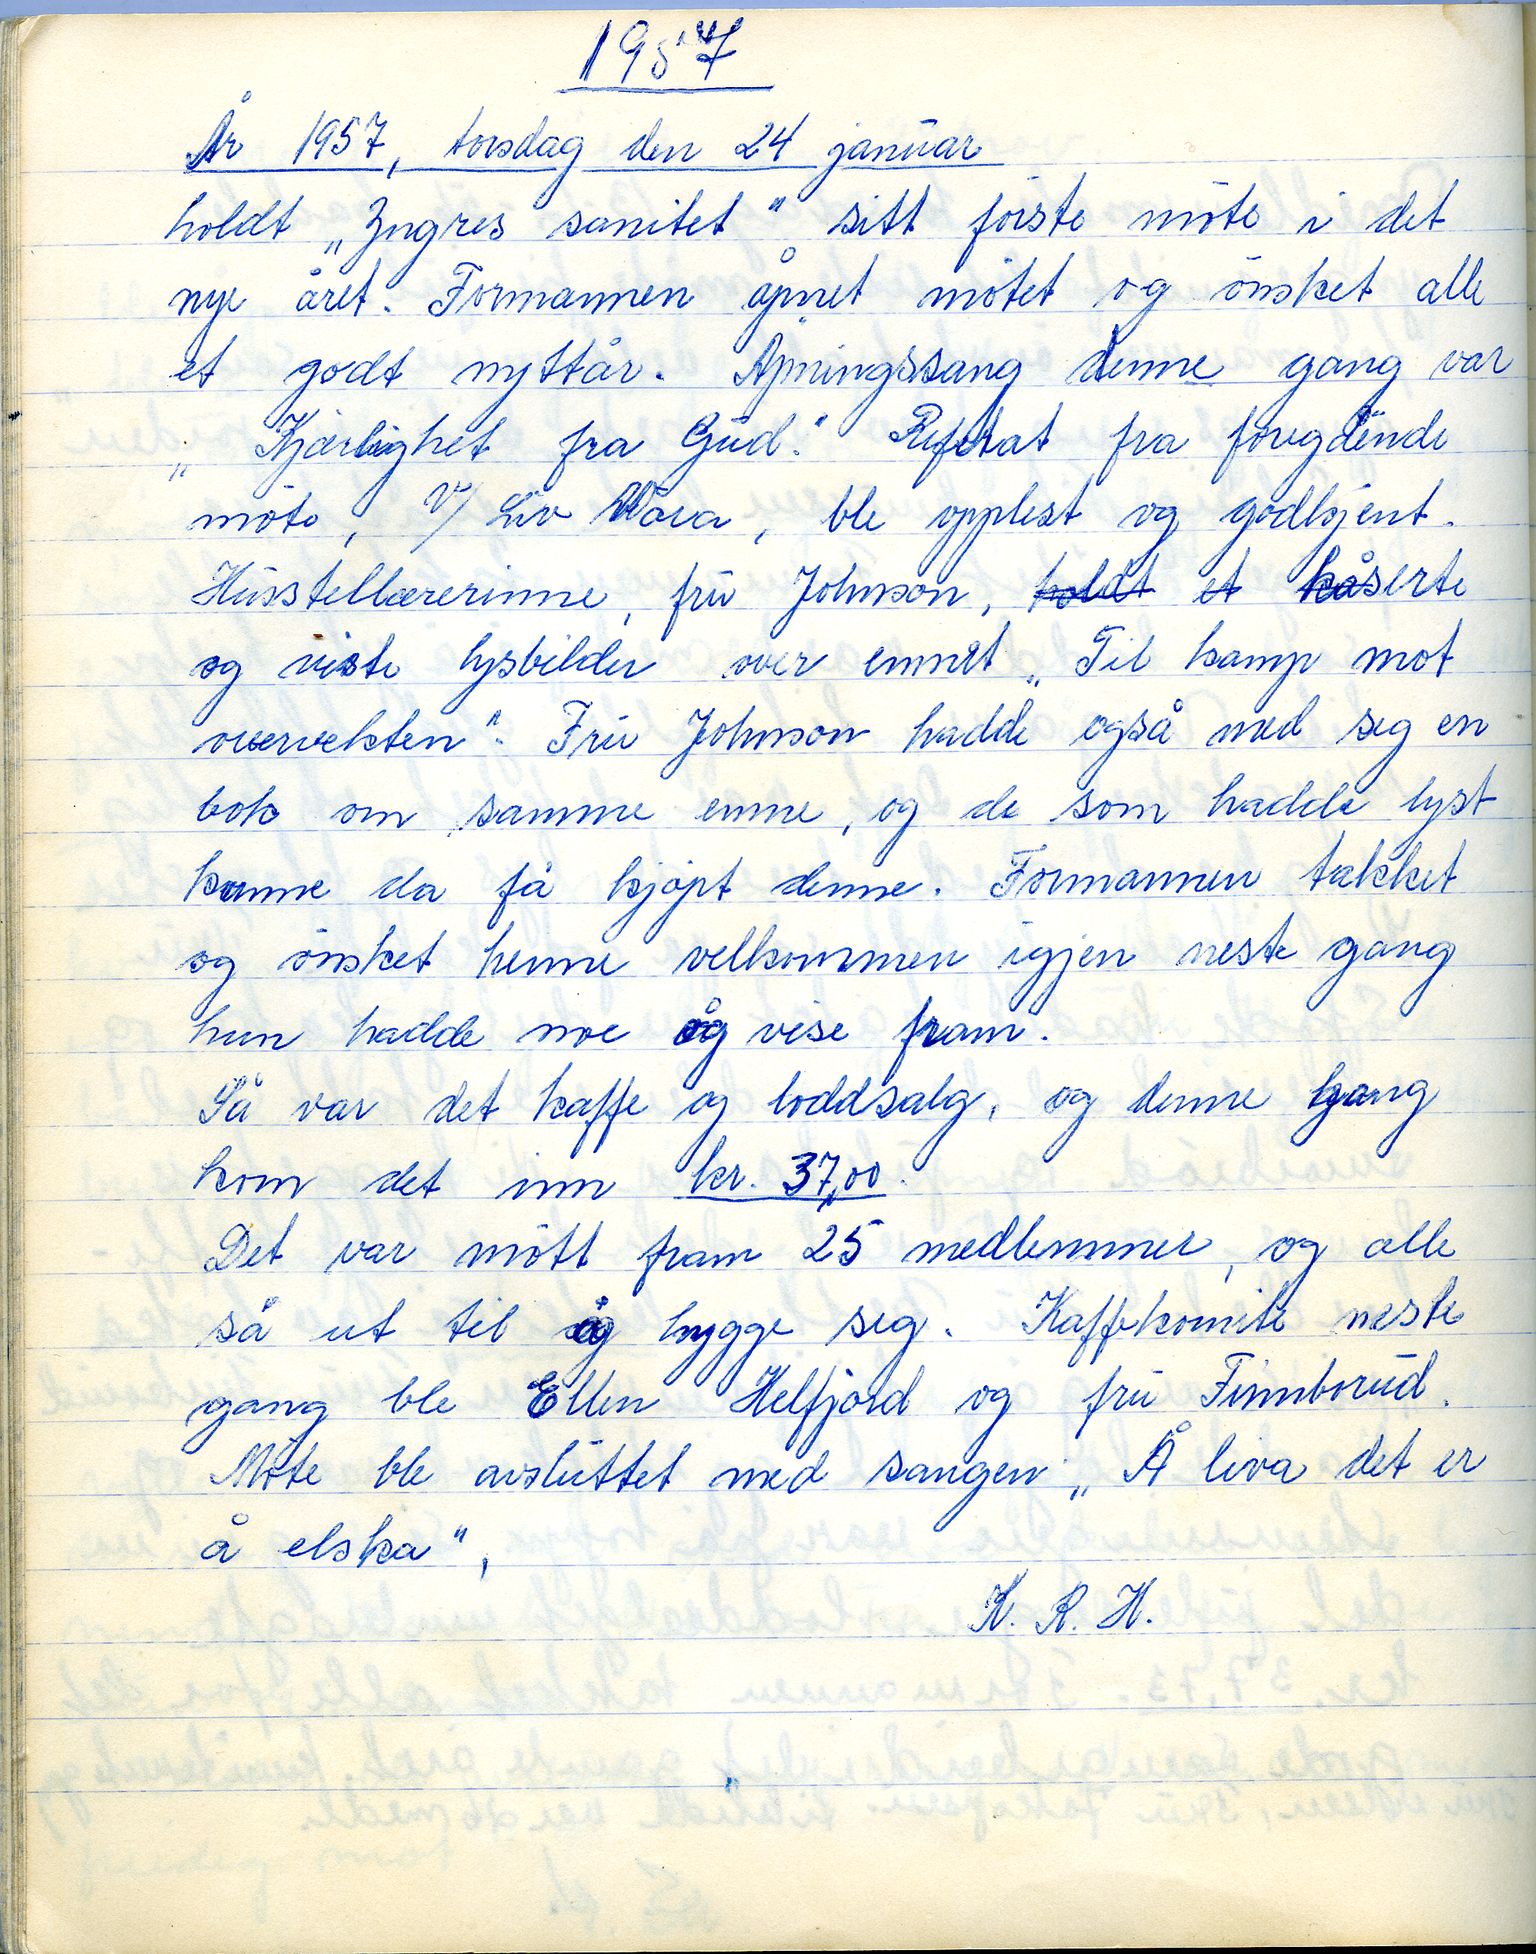 1957
År 1957, torsdag den 24 januar
holdt „Yngres sanitet" sitt første møte i det
nye året. Formannen åpnet møtet og ønsket alle
et godt nyttår. Åpningssang denne gang var
„Kjærlighet fra Gud." Referat fra foregående
møte, v/ Liv Våra, ble opplest og godkjent.
Husstellærerinne, fru Johnson, holdt et kåserte
og viste lysbilder over emnet „Til kamp mot
overvekten". Fru Johnson hadde også med seg en
bok om samme emne, og de som hadde lyst
kunne da få kjøpt denne. Formannen takket
og ønsket henne velkommen igjen neste gang
hun hadde noe å vise fram.
Så var det kaffe og loddsalg, og denne gang
kom det inn kr. 37,00.
Det var møtt fram 25 medlemmer, og alle
så ut til å hygge seg. Kaffekomite neste
gang ble Ellen Helfjord og fru Finnborud.
Møte ble avsluttet med sangen „Å leva det er
å elska",
K. R. H.